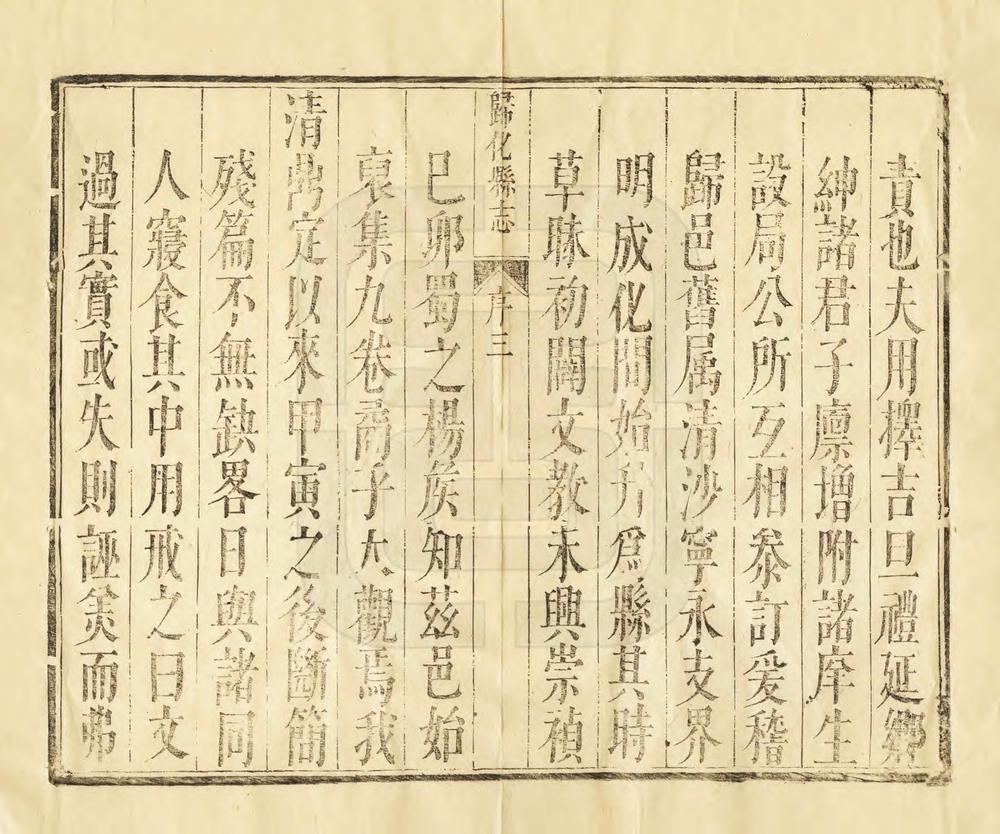 責也夫用擇吉旦禮延鄉
紳諸君子廩增附諸庠生
設局公所互相叅訂爰稽
歸邑舊属清沙寧永支界
明成化間始升爲縣其時
草昧初闢文教未興崇禎
歸化縣志
序三
己卯蜀之楊侯知茲邑始
裒集九卷斎乎大觀焉我
清鼎定以來甲寅之後斷簡
殘篇不無缺畧日與諸同
人寢食其中用戒之曰文
過其實或失則誣美而弗